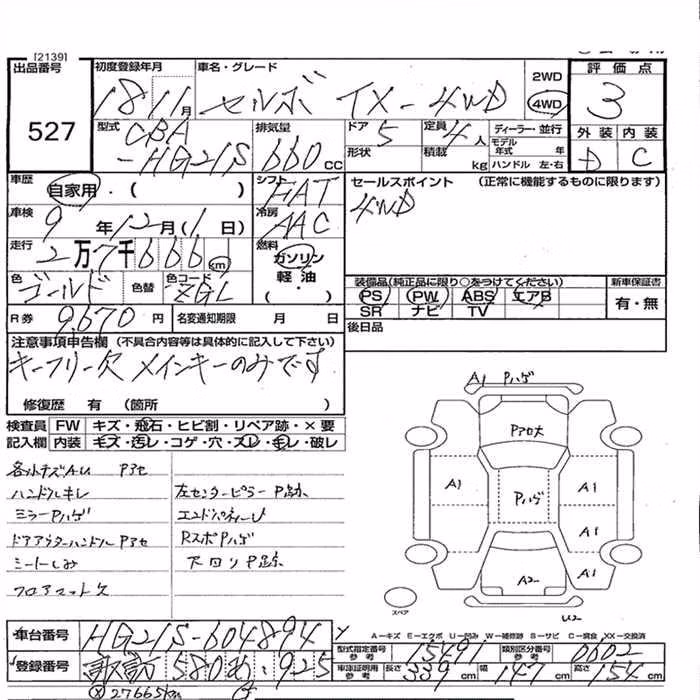 [2139]
出品番号
527
初度登録年月
18 11月
車名・グレード
セルボ TX-4WD
2WD
4WD
評価点
3
外装 内装
D C
型式
CBA
-HG21S
排気量
660 CC
ドア 5
形状
定員 4人
積載 kg
ディーラー・並行
モデル年式 年
ハンドル 左・右
車歴
自家用・( )
シフト
FAT
セールスポイント (正常に機能するものに限ります)
4WD
車検
9年12月(1日)
冷房
AAC
走行
2万7千666km
燃料
ガソリン
軽油
(・)
色
ゴールド
色替
色コード
ZGL
装備品(純正品に限り○をつけてください)
PS PW ABS エアB
SR ナビ TV
新車保証書
有・無
R券 9,670円
名変通知期限 月 日
後日品
注意事項申告欄(不具合内容等は具体的に記入して下さい)
キーフリー欠 メインキーのみです
修復歴 有 (箇所 )
検査員
記入欄
FW キズ・飛石・ヒビ割・リペア跡・×要
内装 キズ・汚レ・コゲ・穴・スレ・モレ・破レ
各小キズAU Pアセ
ハンドルキレ
ミラーPハゲ
ドアアウターハンドルPアセ
シートしみ
フロアマット欠
左センターピラーP跡
RスポPハゲ
下回りP跡
A1 Pハゲ
Pアセ大
A1
Pハゲ
A1
A1
A1
A2
U2
スペア
A-キズ E-エクボ U-凹み W-補修跡 S-サビ C-腐食 XX-交換済
車台番号
HG21S-604894
型式指定番号 15491
類別区分番号 0602
登録番号
諏訪 580 925
車庫証明用参考 長さ 339cm 幅 147cm 高さ 154cm
27665km